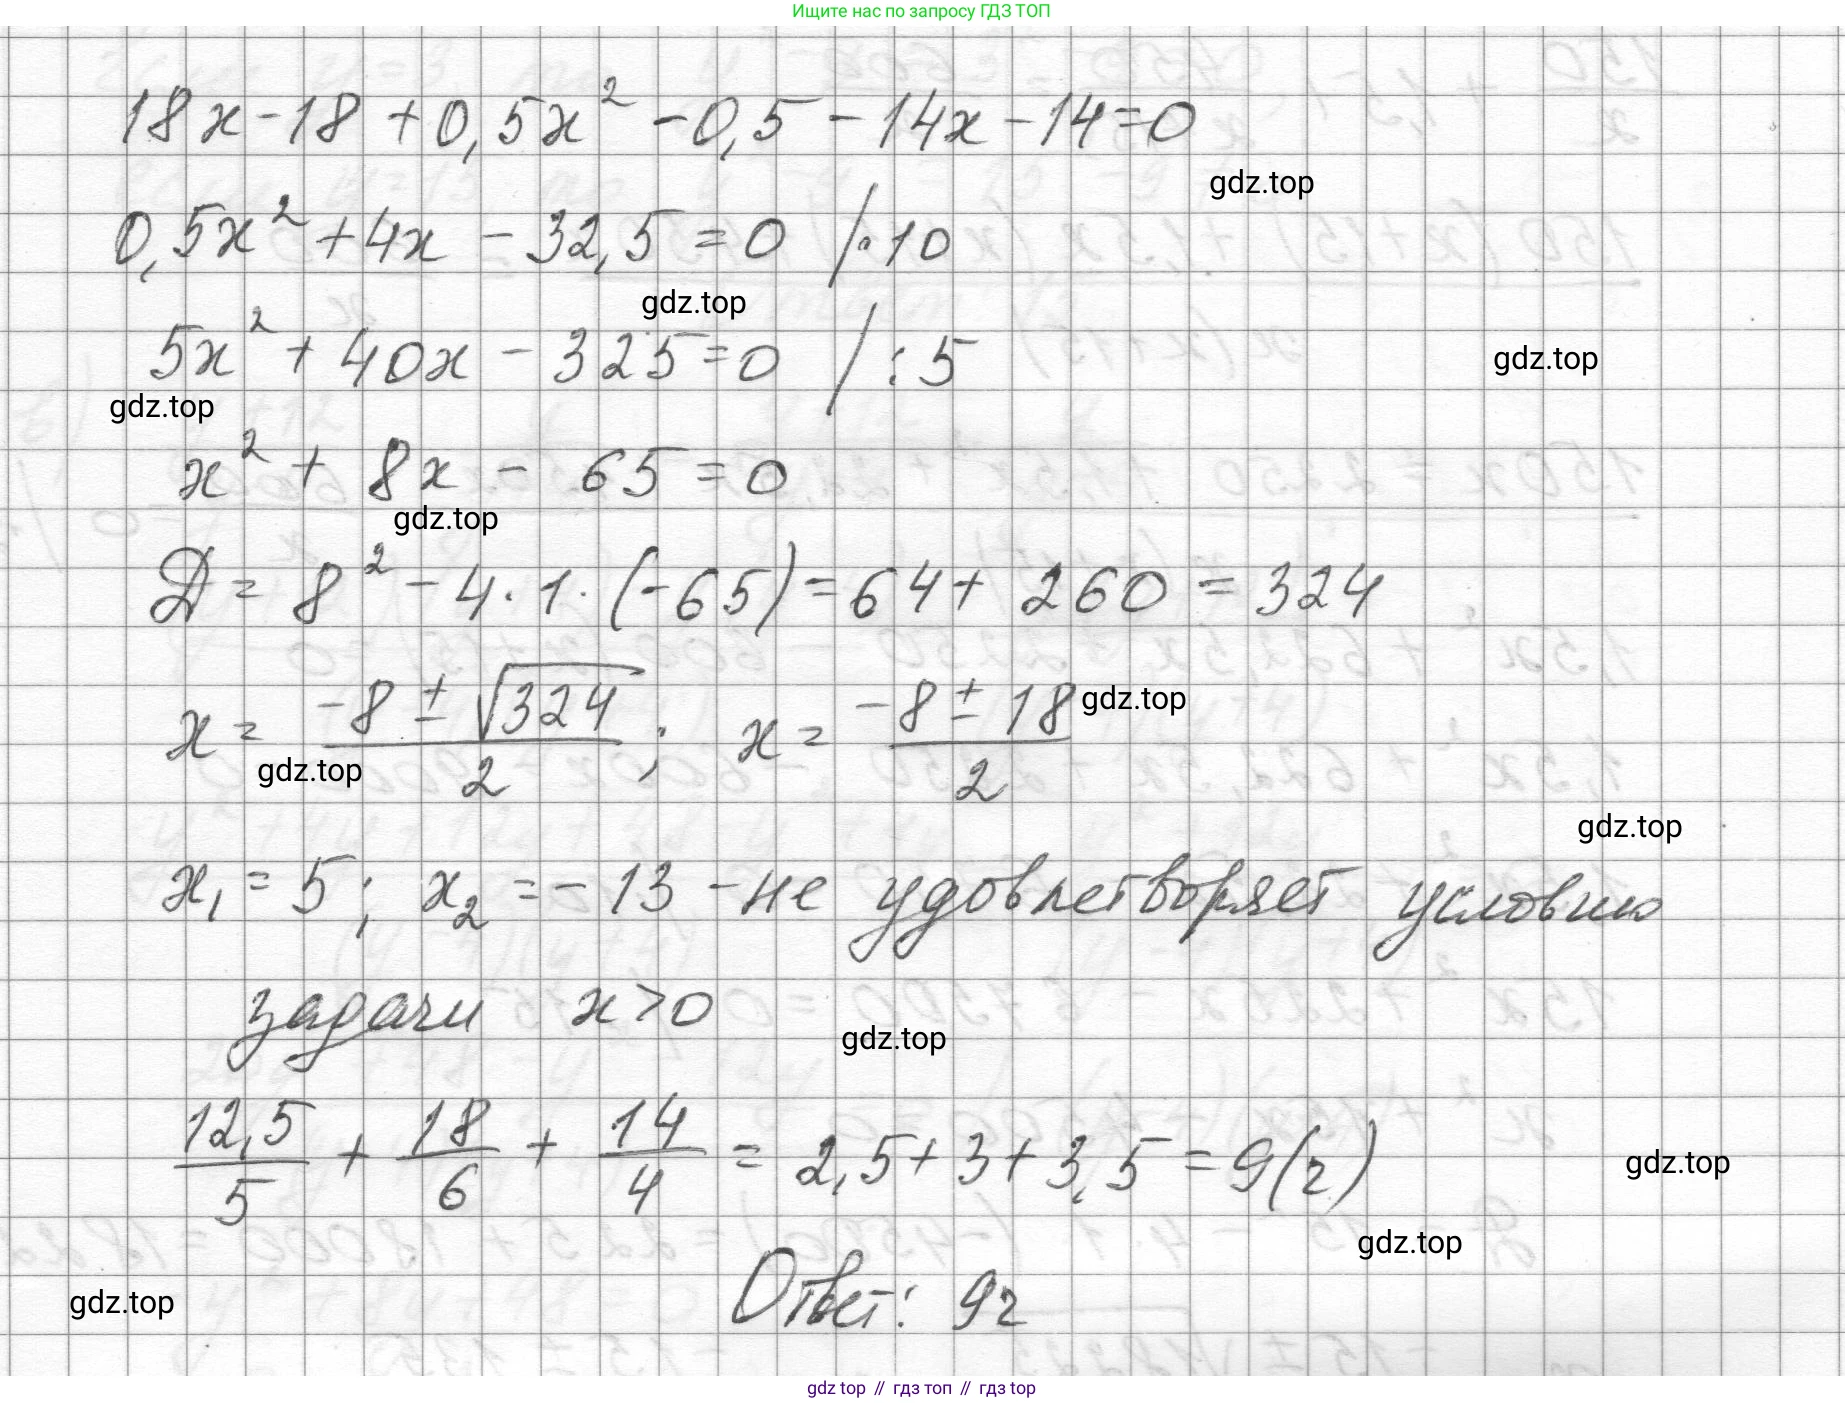 Ищите нас по запросу ГДЗ ТОП
18x - 18 + 0,5x² - 0,5 - 14x - 14 = 0
gdz.top
0,5x² + 4x - 32,5 = 0 / · 10
gdz.top
5x² + 40x - 325 = 0 / : 5
gdz.top
gdz.top
x² + 8x - 65 = 0
gdz.top
Д = 8² - 4 · 1 · (-65) = 64 + 260 = 324
x = (-8 ± √324)/2 ; x = (-8 ± 18)/2
gdz.top
gdz.top
gdz.top
x₁ = 5 ; x₂ = -13 - не удовлетворяет условию
задачи x > 0
gdz.top
12,5/5 + 18/6 + 14/4 = 2,5 + 3 + 3,5 = 9 (ч)
gdz.top
gdz.top
Ответ: 9ч
gdz.top
gdz top // гдз топ // гдз top